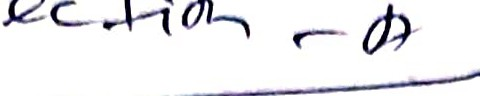 ection - A